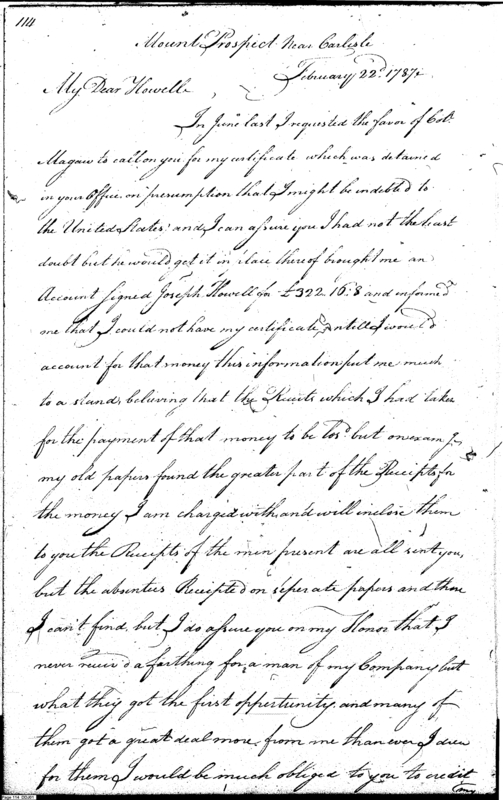 114
Mount Prospect Near Carlisle
February 22d 1787
My Dear Howell
In June last I requested the favor of Colo
Magaw to call on you for my certificate which was detained
in your Office, on presumption that I might be indebted to
the United States; and I can assure you I had not the least
doubt but he would get it in place thereof brought me an
Account signed Joseph Howell for £322.16.8 and inform'd
me that I could not have my certificate, untill I would
account for that money this information put me much
to a stand, beliving that the Receits which I had taken
for the payment of that money to be lost but on
my old papers found the greater part of the Receipts for
the money I am charged with, and will inclose them
to you the Receipts of the men present are all sent you,
but the absentees Receipted on seperate papers and those
I can't find, but I do assure you on my Honor that I
never receiv'd a farthing for a man of my Company but
what they got the first oppertunity, and many of
them got a great deal more, from me than ever I drew
for them, I would be much obliged to you to credit
my